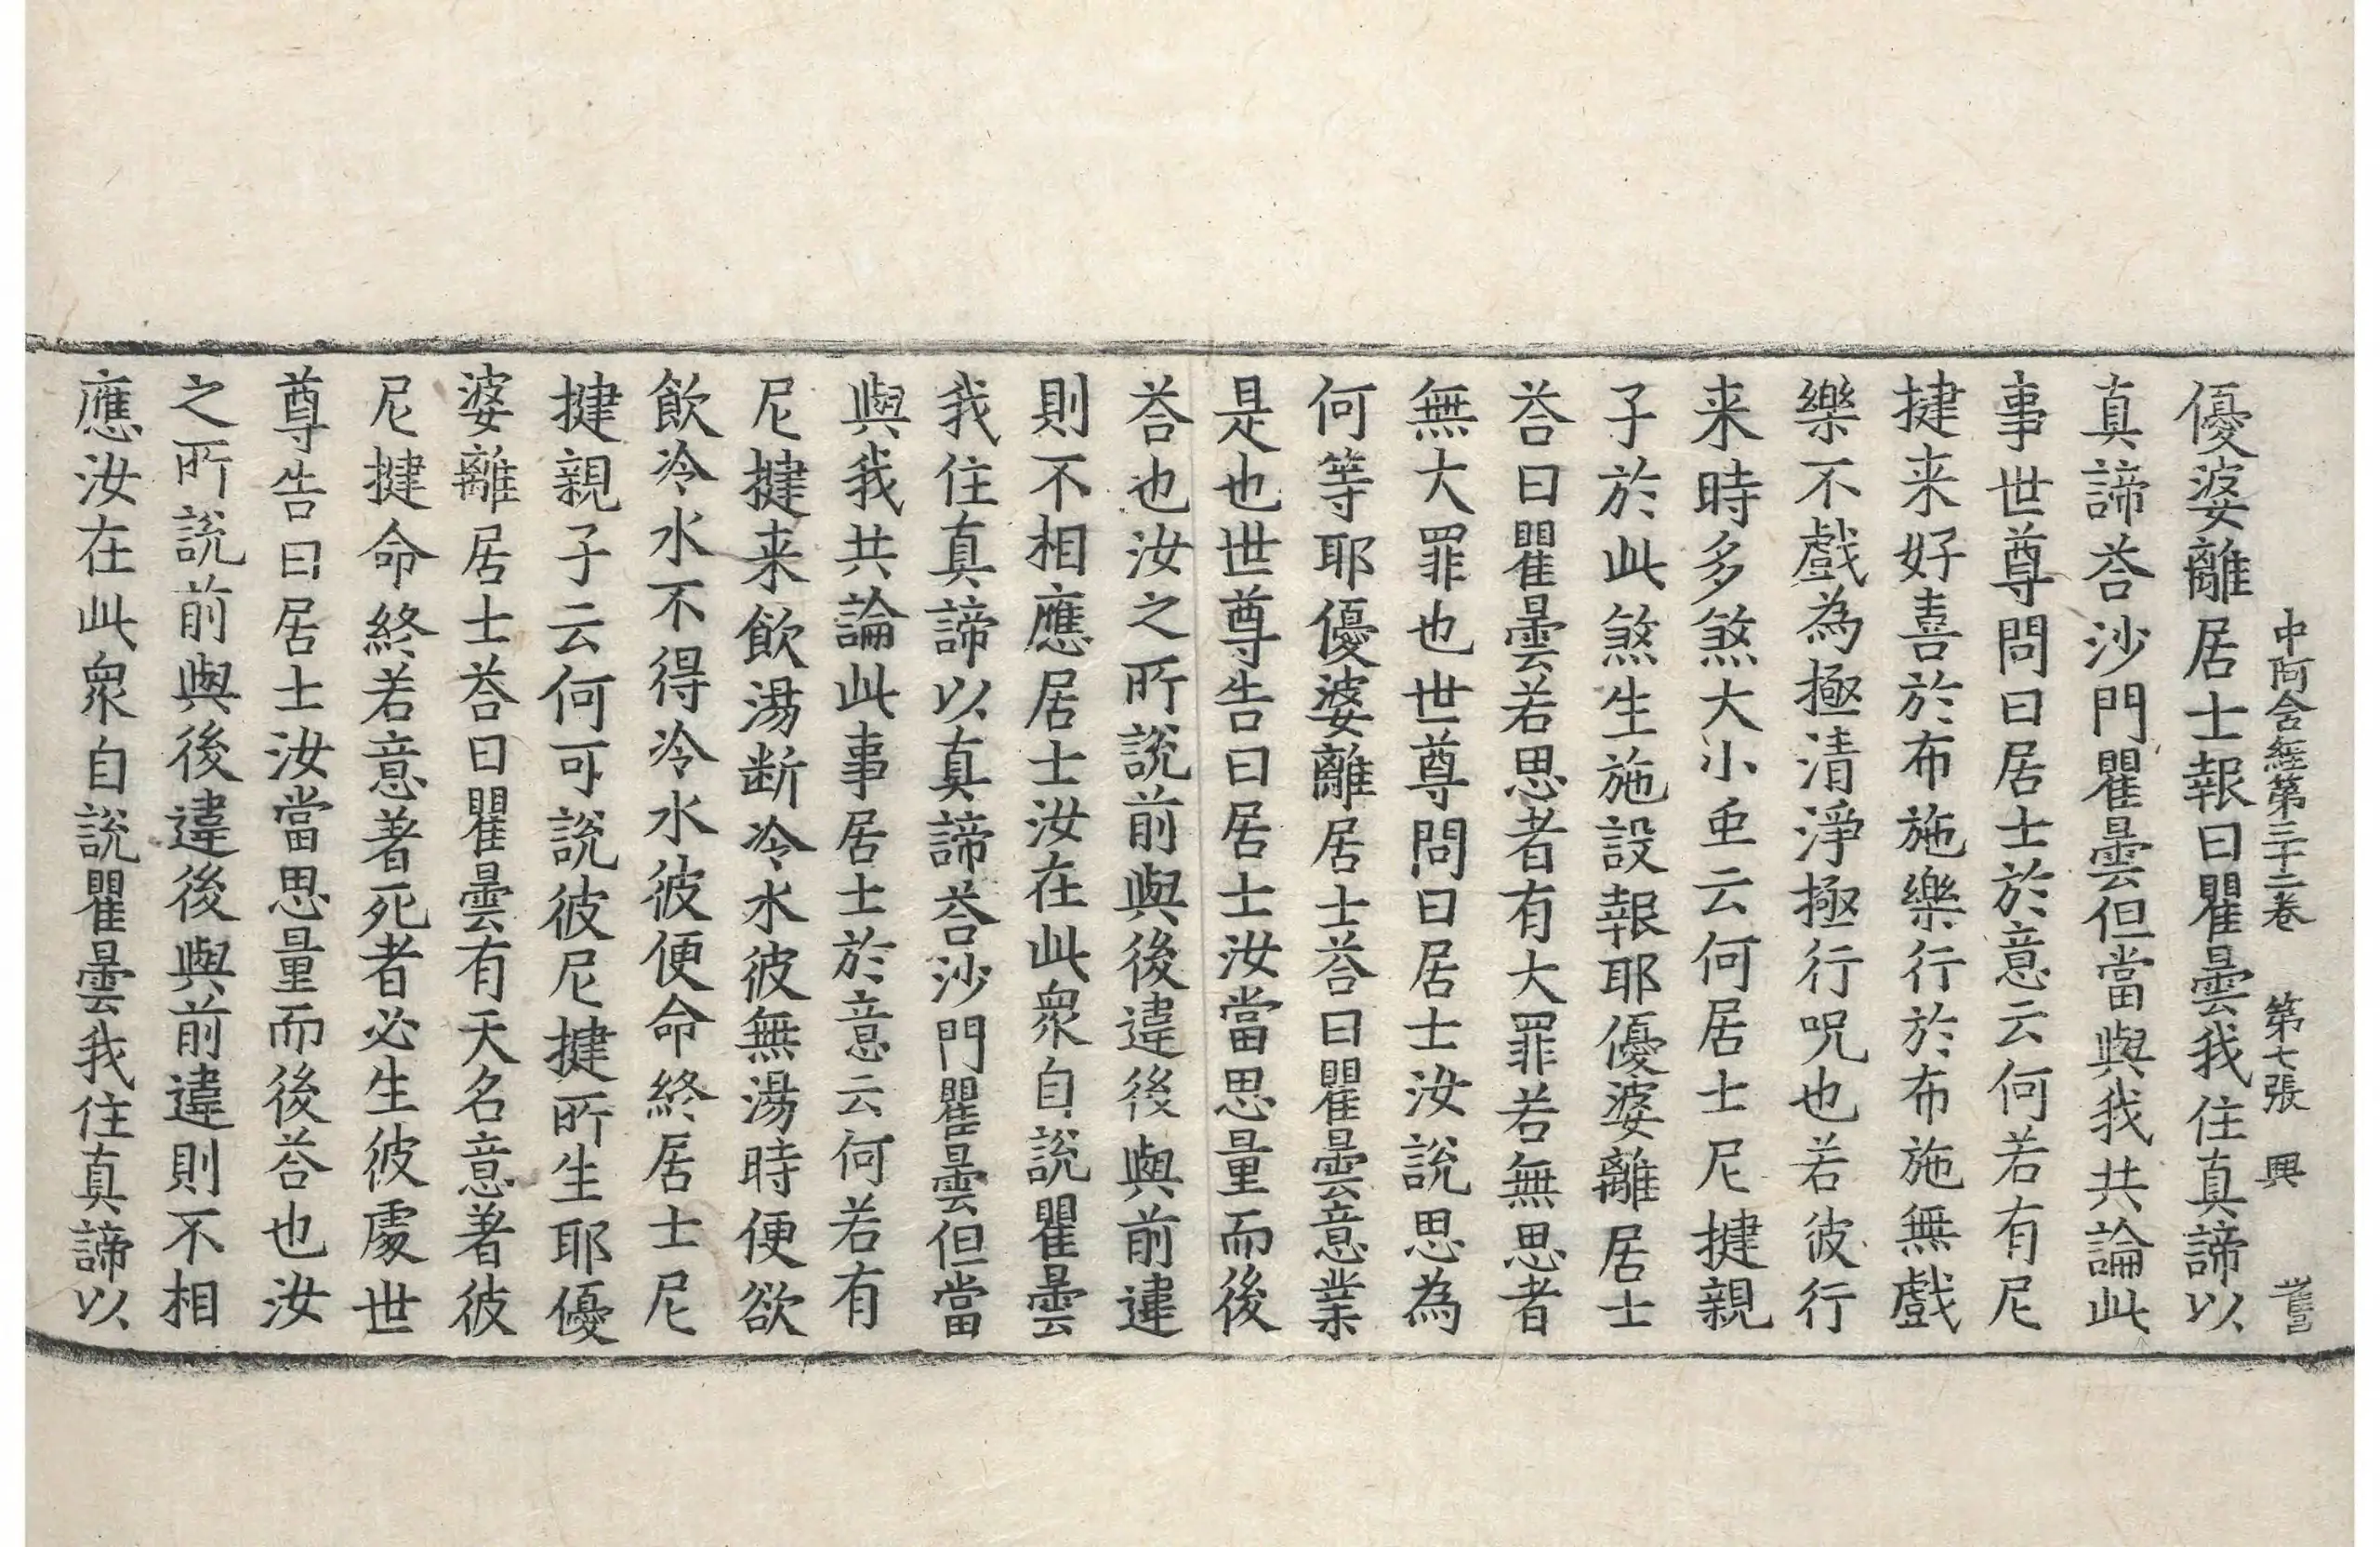 中阿含經第三十二卷 第七張 興
優婆離居士報曰瞿曇我住真諦以
真諦荅沙門瞿曇但當與我共論此
事世尊問曰居士於意云何若有尼
揵来好喜於布施樂行於布施無戲
樂不戲為極清淨極行呪也若彼行
来時多煞大小䖝云何居士尼揵親
子於此煞生施設報耶優婆離居士
荅曰瞿曇若思者有大罪若無思者
無大罪也世尊問曰居士汝說思為
何等耶優婆離居士荅曰瞿曇意業
是也世尊告曰居士汝當思量而後
荅也汝之所說前與後違後與前違
則不相應居士汝在此衆自說瞿曇
我住真諦以真諦荅沙門瞿曇但當
與我共論此事居士於意云何若有
尼揵来飲湯断冷水彼無湯時便欲
飲冷水不得冷水彼便命終居士尼
揵親子云何可說彼尼揵所生耶優
婆離居士荅曰瞿曇有天名意著彼
尼揵命終若意著死者必生彼處世
尊告曰居士汝當思量而後荅也汝
之所說前與後違後與前違則不相
應汝在此衆自說瞿曇我住真諦以